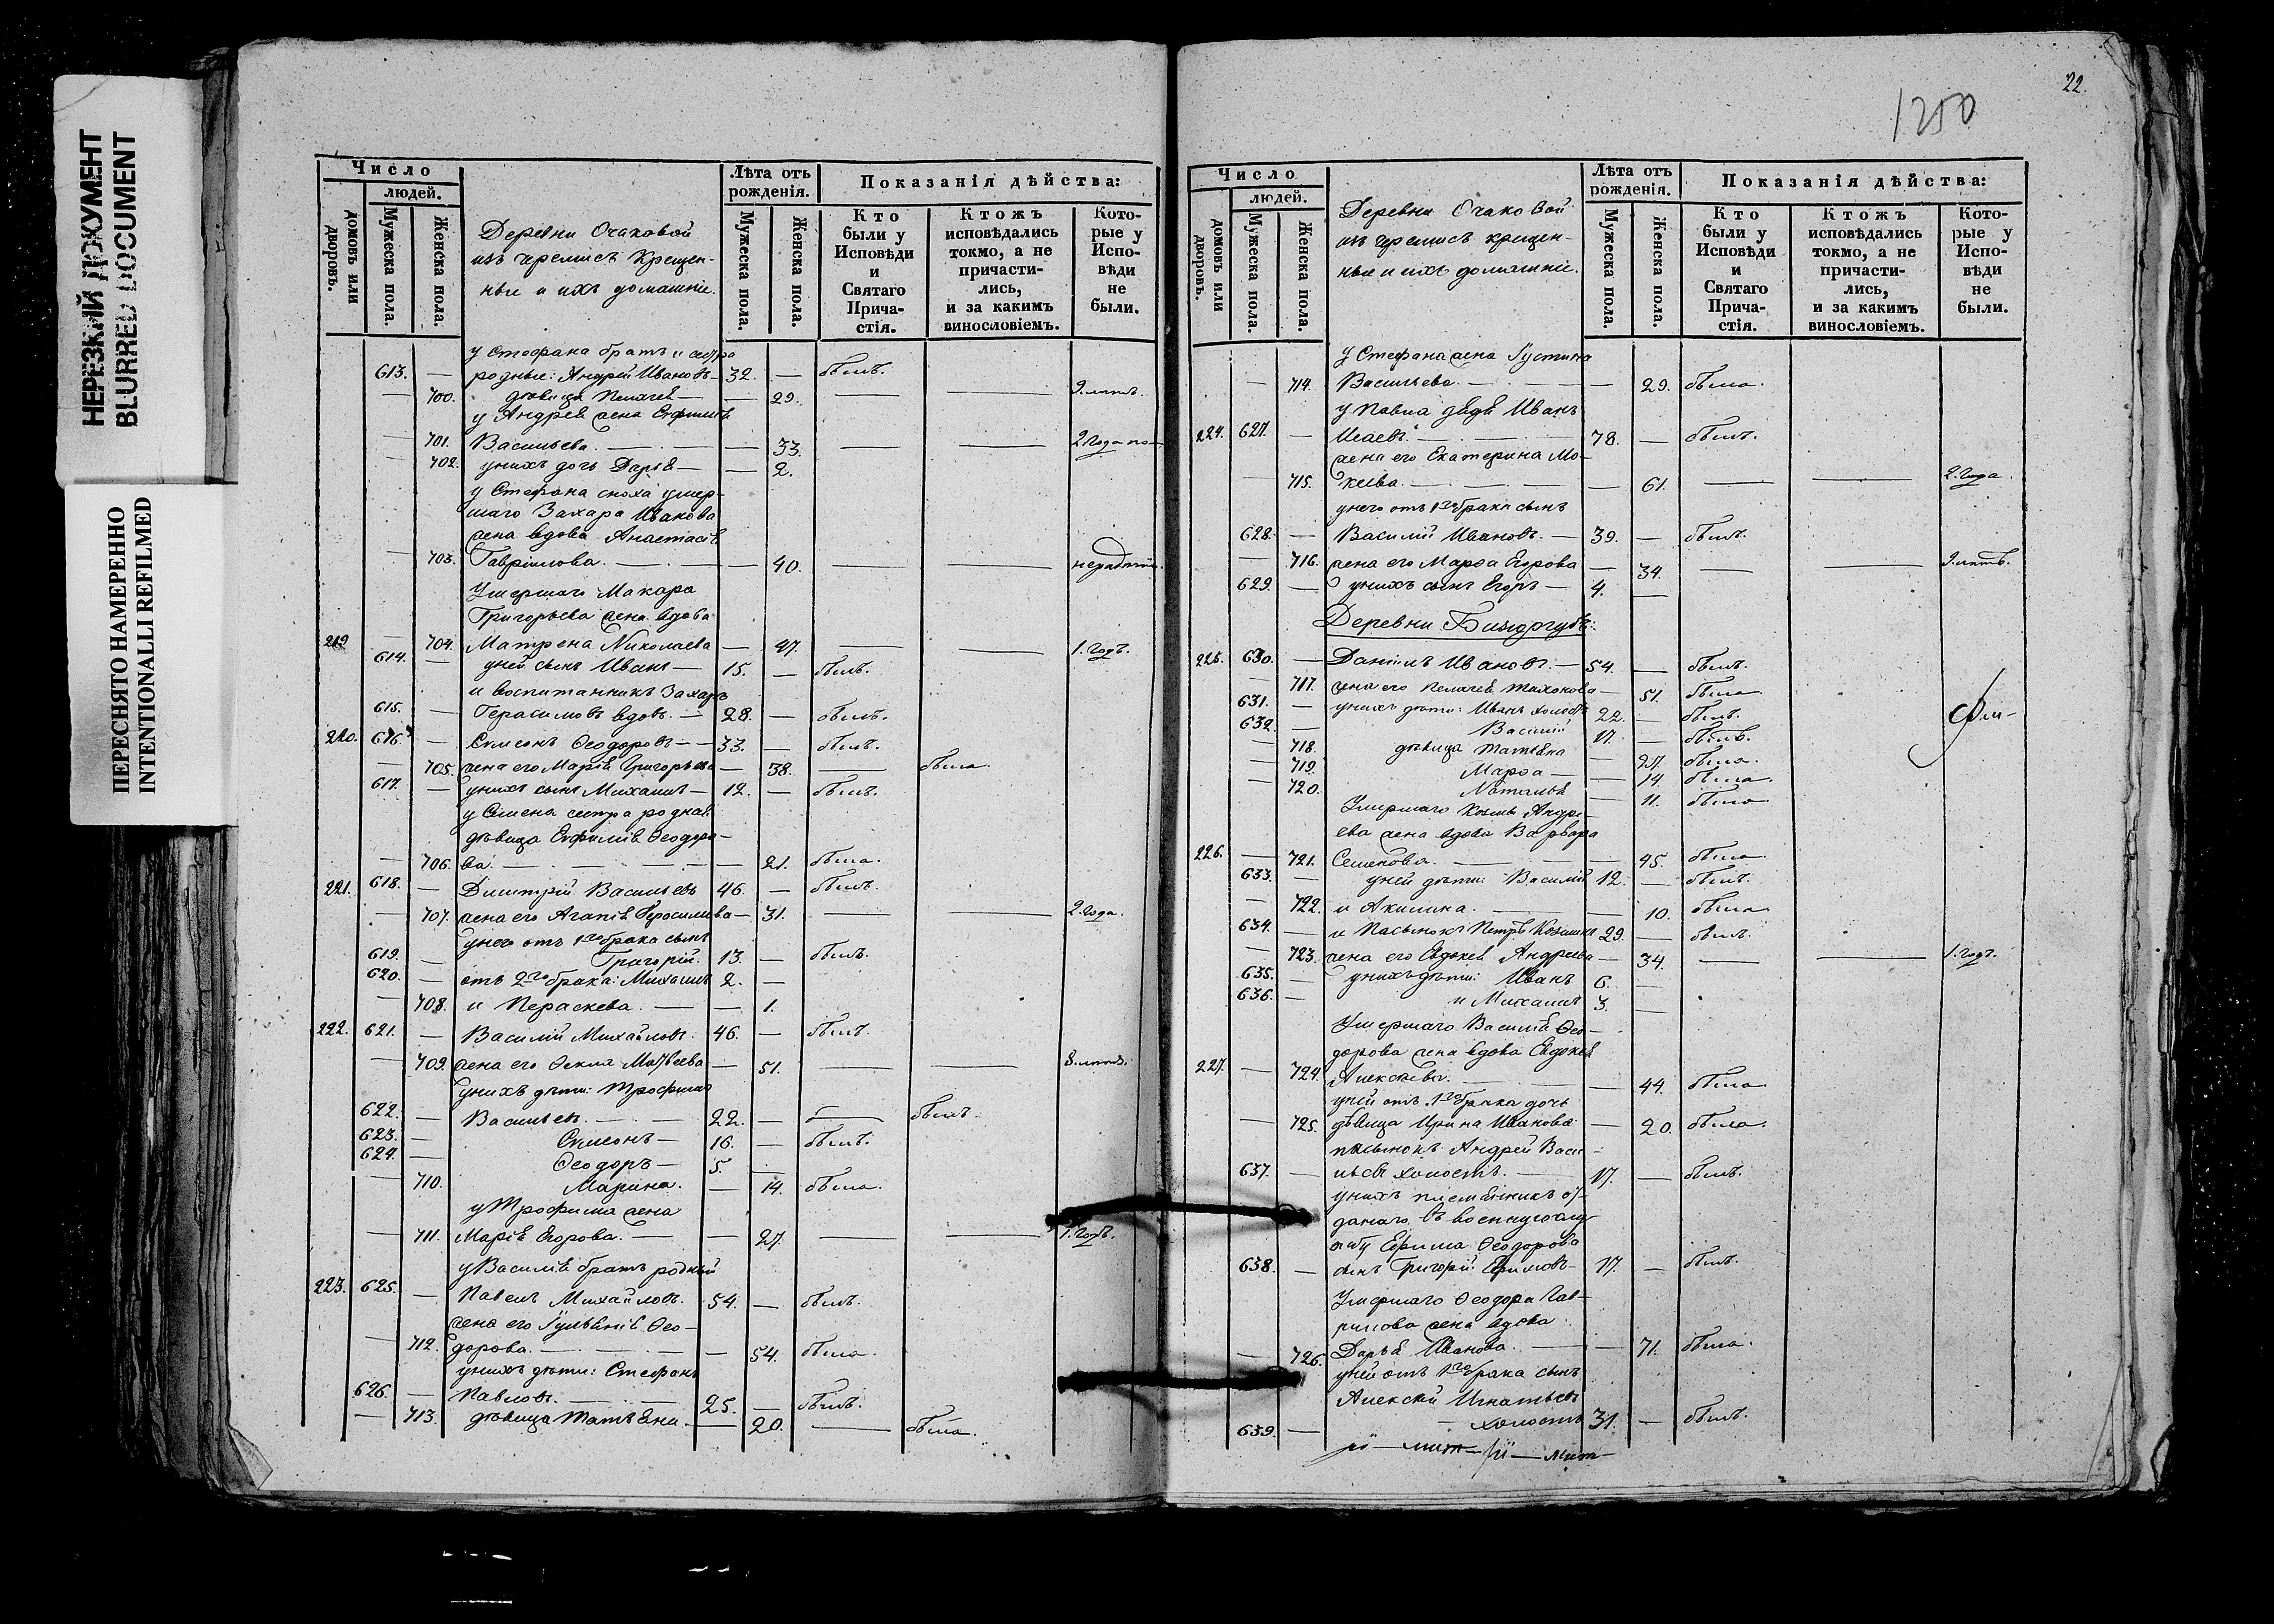 НЕРЕЗКИЙ ДОКУМЕНТ
BLURRED DOCUMENT
ПЕРЕСНЯТО НАМЕРЕННО
INTENTIONALLI REFILMED
Число
людей.
домовъ или дворовъ.
Мужеска пола.
Женска пола.
Деревни Очаковой
изъ черемисъ Крещен-
ные и ихъ домашніе.
Лѣта отъ рожденія.
Мужеска пола.
Женска пола.
Показанія дѣйства:
Кто были у Исповѣди и Святаго Прича-стія.
Ктожъ исповѣдались токмо, а не причасти-лись, и за какимъ винословіемъ.
Кото-рые у Испо-вѣди не были.
у Стефана братъ и сестра
613. — родные: Андрей Ивановъ — 32. — былъ.
— 700. дѣвица Пелагея — — 29. — —
у Андрея жена
— 701. Васильева. — — 33. — — 2 года
— 702. у нихъ дочь Дарія — — 2.
у Стефана сноха умер-
шаго Захара Иванова
жена вдова Анастасія
— 703. Гаврилова. — — 40. — —
Умершаго Макара
Григорьева жена вдова
219 — 704. Матрена Николаева — 47. — — 1. годъ.
614. — у ней сынъ Иванъ — 15. — былъ.
и воспитанникъ Захаръ
615. — Герасимовъ вдовъ. — 28. — былъ.
220. 616. — Симеонъ Ѳеодоровъ — 33. — былъ.
— 705. жена его Марія Григорьева — 38. — была.
617. — у нихъ сынъ Михаилъ — 12. — былъ.
у Симеона сестра родная
дѣвица Евфимія Ѳеодоро-
— 706. ва. — — 21. была.
221. 618. — Димитрій Васильевъ 46. — былъ.
— 707. жена его Агапія Герасимова — 31. — — 2. года.
у него отъ 1го брака сынъ
619. — Григорій. 13. — былъ.
620. — отъ 2го брака: Михаилъ 2. —
— 708. и Параскева. — — 1.
222. 621. — Василій Михайловъ. 46. — былъ.
— 709. жена его Ѳекла Матвеева — 51. — — 8. лѣтъ.
у нихъ дѣти: Трофимъ
622. — Васильевъ. — 22. — — былъ.
623. — Симеонъ — 16. — былъ.
624. — Ѳеодоръ — 5. —
— 710. Марина. — 14. была.
у Трофима жена
— 711. Марія Егорова. — — 27. — — 1. годъ.
у Василія братъ родный
223. 625. — Павелъ Михайловъ. 54. — былъ.
жена его Іуліанія Ѳео-
— 712. дорова. — — 54. была.
у нихъ дѣти: Стефанъ
626. — Павловъ. — 25. — былъ.
— 713. дѣвица Татьяна. — 20. — была.
22.
1250
Число
людей.
домовъ или дворовъ.
Мужеска пола.
Женска пола.
Деревни Очаковой
изъ черемисъ крещен-
ные и ихъ домашніе.
Лѣта отъ рожденія.
Мужеска пола.
Женска пола.
Показанія дѣйства:
Кто были у Исповѣди и Святаго Прича-стія.
Ктожъ исповѣдались токмо, а не причасти-лись, и за какимъ винословіемъ.
Кото-рые у Испо-вѣди не были.
у Стефана жена Іустина
— 714. Васильева. — — 29. была.
у Павла дядя Иванъ
224. 627. — Исаевъ. — 78. — былъ.
жена его Екатерина Мо-
— 715. кеева. — — 61. — — 2. года.
у него отъ 1го брака сынъ
628. — Василій Ивановъ. — 39. — былъ.
— 716. жена его Марѳа Егорова — 34. — —
629. — у нихъ сынъ Егоръ — 4. —
Деревни
225. 630. — Даніилъ Ивановъ. — 54. — былъ.
— 717. жена его Пелагея Тихонова — 51. была
631. — у нихъ дѣти: Иванъ холостъ 22. — былъ.
632. — Василій 17. — былъ.
— 718. дѣвица Татьяна — 27. была.
— 719. Марѳа — — 14. была.
— 720. Наталія — 11. была
Умершаго Козмы Андре-
ева жена вдова Варвара
226. — 721. Семенова. — — 45. была.
633. — у ней дѣти: Василій 12. — былъ.
— 722. и Акилина. — — 10. была
634. — и пасынокъ Петръ Козминъ 29. — былъ.
— 723. жена его Евдокія Андреева — 34. — — 1. годъ.
635. — у нихъ дѣти: Иванъ 6. —
636. — и Михаилъ 3. —
Умершаго Василія Ѳео-
дорова жена вдова Евдокія
227. — 724. Алексѣева. — — 44. была.
у ней отъ 1го брака дочь
— 725. дѣвица Ирина Иванова — 20. была.
пасынокъ Андрей Васи-
637. — льевъ холостъ. — 17. — былъ.
у нихъ племянникъ от-
даннаго въ военную слу-
жбу Ефима Ѳеодорова
638. — сынъ Григорій Ефимовъ — 17. — былъ.
Умершаго Ѳеодора Гав-
рилова жена вдова
— 726. Дарья Иванова. — — 71. была.
у ней отъ 1го брака сынъ
Алексѣй Игнатьевъ
639. — холостъ 31. — былъ.